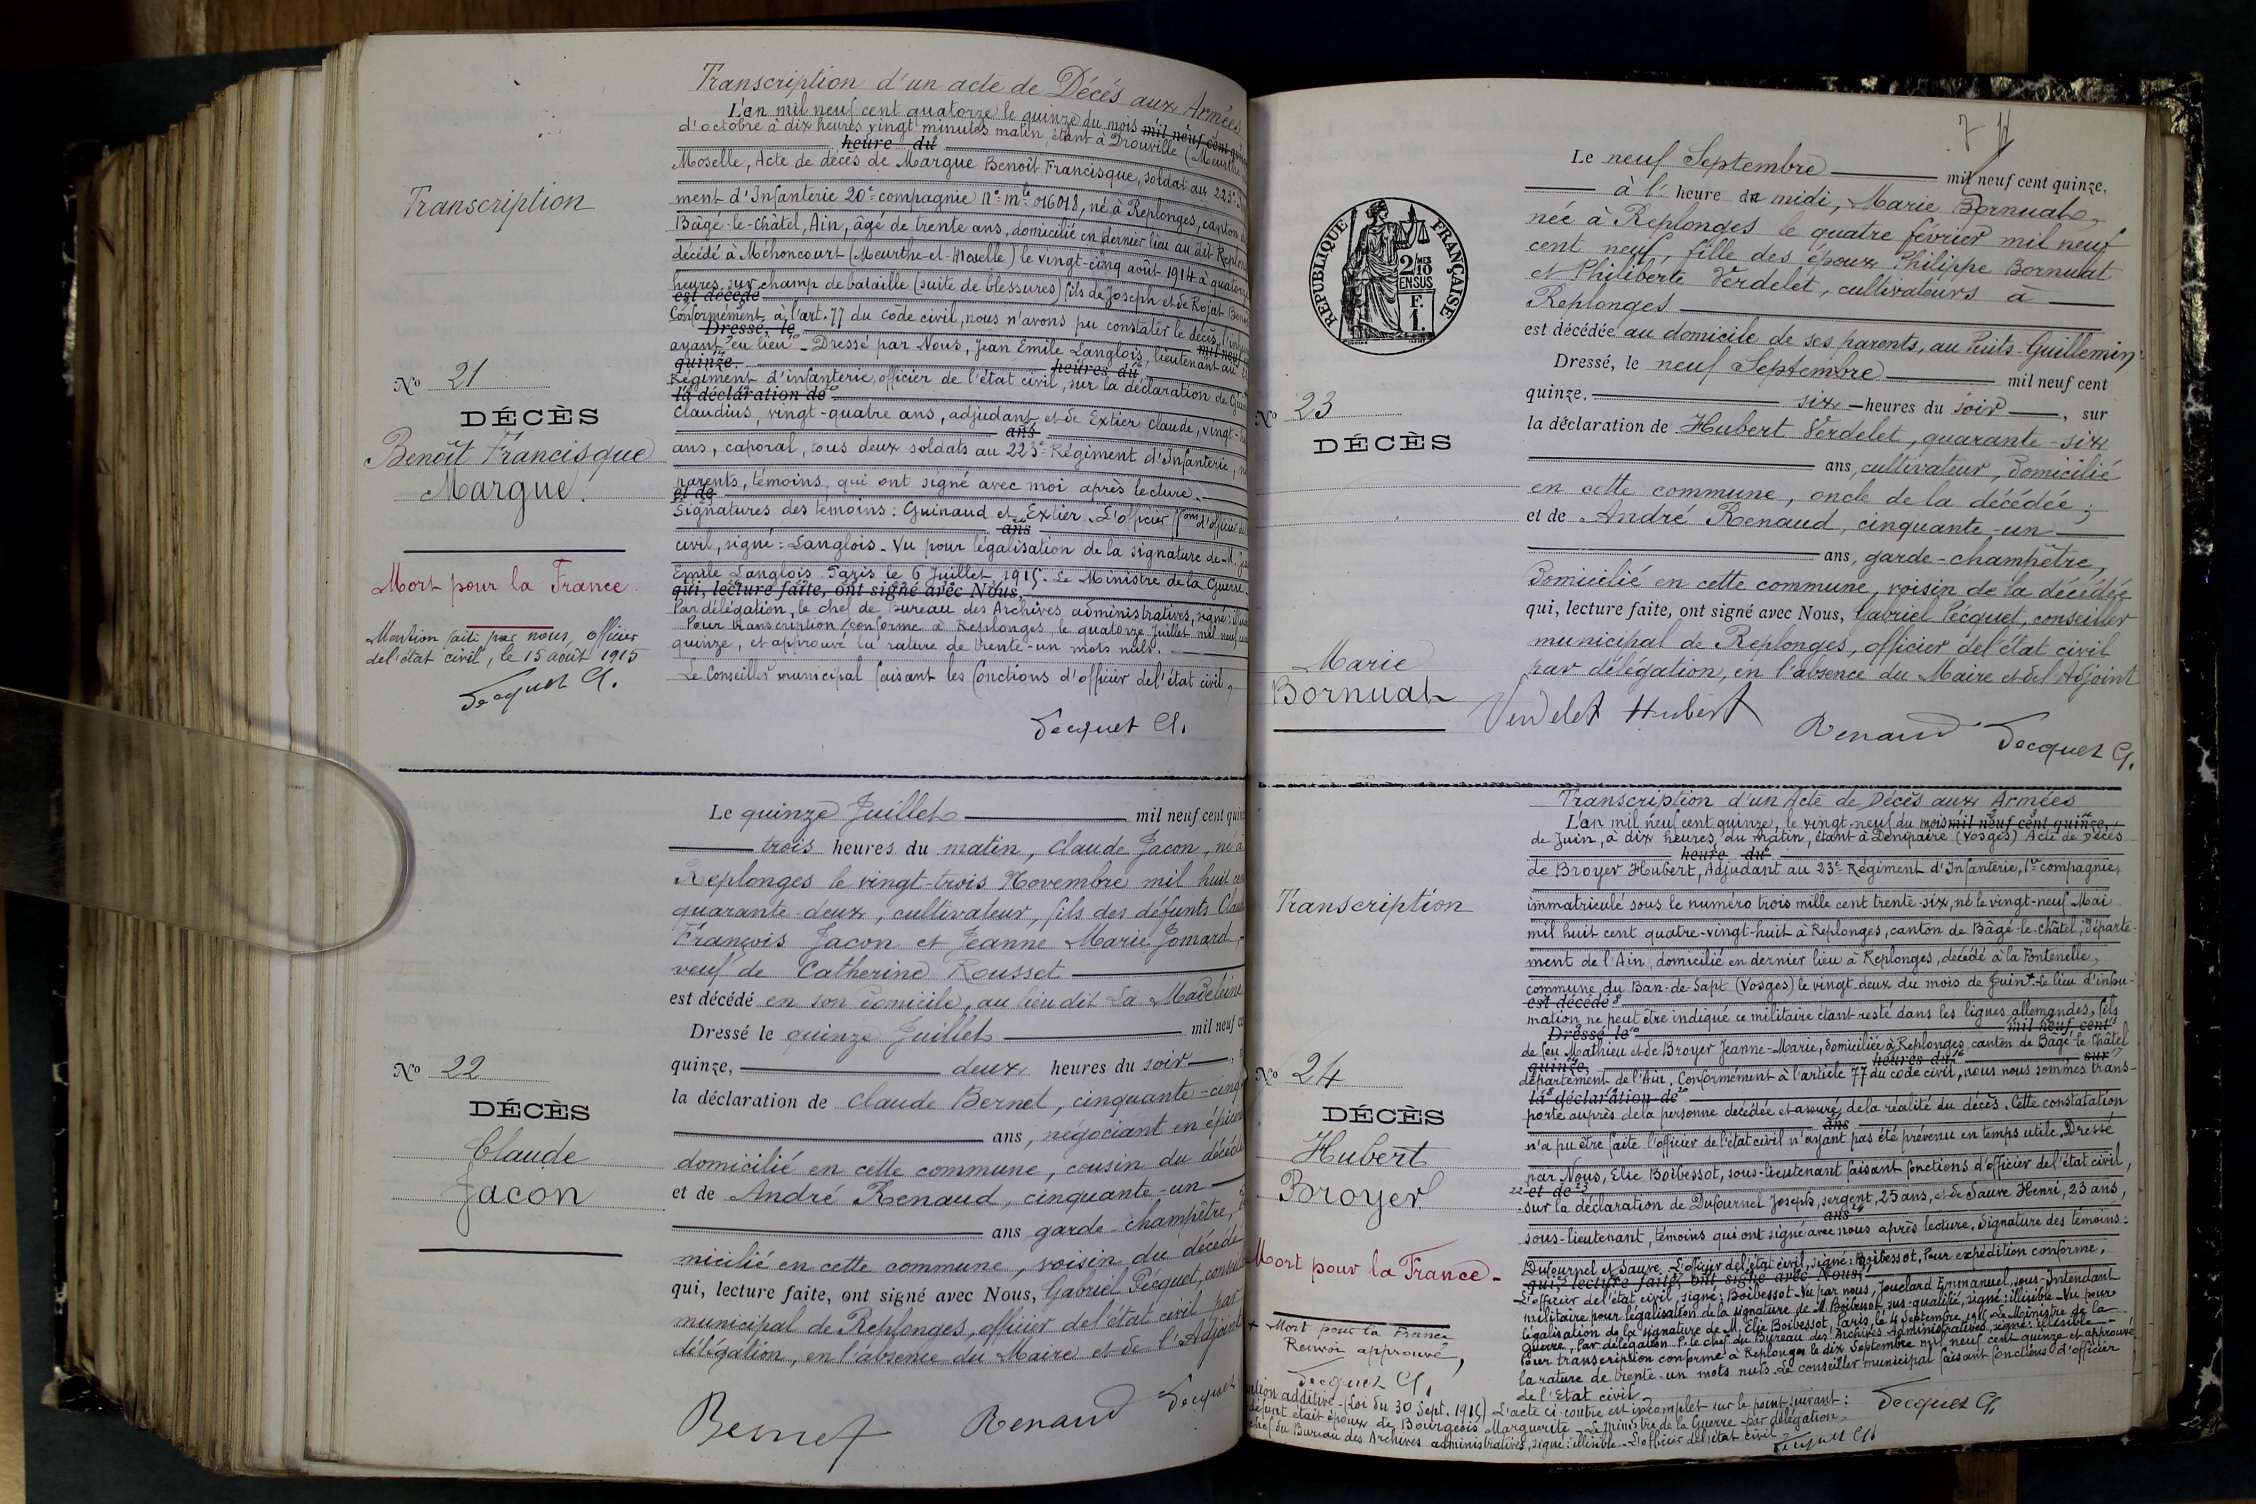 Transcription
Nº 21
DÉCÈS
Benoît Francisque
Margue.
Mort pour la France.
Mention faite par nous, officier
de l'état civil, le 15 août 1915
Pecquet G.
Transcription d'un acte de Décés aux Armées
L'an mil neuf cent quatorze le quinze du mois mil neuf cent
d'octobre à dix heures vingt minutes matin, étant à Drouville (Meurthe
heure du
Moselle, Acte de décès de Margue Benoît Francisque, soldat au 223e
ment d'Infanterie 20e compagnie Nº mle 016018, né à Replonges, canton
Bâgé-le-Châtel, Ain, âgé de trente ans, domicilié en dernier lieu au dit
décédé à Méhoncourt (Meurthe-et-Moselle) le vingt-cinq août 1914 à
heures sur champ de bataille (suite de blessures) fils de Joseph et de Rojat
est décédé
Conformément à l'art. 77 du code civil, nous n'avons pu constater le décès,
Dressé, le
ayant eu lieu - Dressé par Nous, Jean Emile Langlois, lieutenant au
quinze. heures du
Régiment d'infanterie, officier de l'état civil, sur la déclaration de
la déclaration de
Claudius, vingt-quatre ans, adjudant et de Extier Claude, vingt-
ans
ans, caporal, tous deux soldats au 223e Régiment d'Infanterie,
parents, témoins, qui ont signé avec moi après lecture.
et de
Signatures des témoins: Guinaud et Extier. L'officier
ans
civil, signé: Langlois - Vu pour légalisation de la signature de M.
Emile Langlois. Paris le 6 Juillet 1915. Le Ministre de la Guerre.
qui, lecture faite, ont signé avec Nous,
Par délégation, le chef de Bureau des Archives administratives, signé:
Pour transcription conforme à Replonges, le quatorze Juillet mil neuf
quinze, et approuvé la rature de trente-un mots nuls.
Le Conseiller municipal faisant les fonctions d'officier de l'état civil,
Pecquet G.
Nº 22
DÉCÈS
Claude
Jacon
Le quinze Juillet mil neuf cent
trois heures du matin, Claude Jacon, né à
Replonges le vingt-trois Novembre mil huit
quarante-deux, cultivateur, fils des défunts
François Jacon et Jeanne Marie Jomard,
veuf de Catherine Rousset
est décédé en son domicile, au lieu dit La Madeleine
Dressé le quinze Juillet mil neuf
quinze, deux heures du soir,
la déclaration de Claude Bernet, cinquante-cinq
ans, négociant en
domicilié en cette commune, cousin du
et de André Renaud, cinquante-un
ans garde-champêtre,
micilié en cette commune, voisin du décédé
qui, lecture faite, ont signé avec Nous, Gabriel Pécquet,
municipal de Replonges, officier de l'état civil par
délégation, en l'absence du Maire et de l'Adjoint
Bernet Renaud Pecquet
7
RÉPUBLIQUE FRANÇAISE
2/10
EN SUS
F.
1.
Nº 23
DÉCÈS
Marie
Bornuat
Le neuf Septembre mil neuf cent quinze,
à l' heure de midi, Marie Bornuat,
née à Replonges le quatre février mil neuf
cent neuf, fille des époux Philippe Bornuat
et Philiberte Verdelet, cultivateurs à
Replonges
est décédée au domicile de ses parents, au Puits-Guillemin
Dressé, le neuf Septembre mil neuf cent
quinze, six heures du soir, sur
la déclaration de Hubert Verdelet, quarante-six
ans, cultivateur, domicilié
en cette commune, oncle de la décédée;
et de André Renaud, cinquante-un
ans, garde-champêtre,
domicilié en cette commune, voisin de la décédée
qui, lecture faite, ont signé avec Nous, Gabriel Pécquet, conseiller
municipal de Replonges, officier de l'état civil
par délégation, en l'absence du Maire et de l'Adjoint
Verdelet Hubert Renaud Pecquet G.
Transcription
Nº 24
DÉCÈS
Hubert
Broyer
Mort pour la France -
+ Mort pour la France
Renvoi approuvé,
Pecquet G.
Transcription d'un Acte de Décès aux Armées
L'an mil neuf cent quinze, le vingt-neuf du mois mil neuf cent quinze,
de Juin, à dix heures du matin, étant à Denipaire (Vosges) Acte de Décès
heure du
de Broyer Hubert, Adjudant au 23e Régiment d'Infanterie, 1re compagnie,
immatriculé sous le numéro trois mille cent trente-six, né le vingt-neuf Mai
mil huit cent quatre-vingt-huit à Replonges, canton de Bâgé-le-Châtel, départe-
ment de l'Ain, domicilié en dernier lieu à Replonges, décédé à la Fontenelle,
commune du Ban-de-Sapt (Vosges) le vingt-deux du mois de Juin + Le lieu d'inhu-
est décédé
mation ne peut être indiqué ce militaire étant resté dans les lignes allemandes, fils
Dressé le mil neuf cent
de feu Mathieu et de Broyer Jeanne-Marie, domiciliée à Replonges canton de Bâgé-le-Châtel
quinze, heures du sur
département de l'Ain. Conformément à l'article 77 du code civil, nous nous sommes trans-
la déclaration de
porté auprès de la personne décédée et assuré de la réalité du décès. Cette constatation
ans
n'a pu être faite l'officier de l'état civil n'ayant pas été prévenu en temps utile. Dressé
par Nous, Elie Boibessot, sous-lieutenant faisant fonctions d'officier de l'état civil,
et de
sur la déclaration de Dufournel Joseph, sergent, 25 ans, et de Sauve Henri, 23 ans,
ans
sous-lieutenant, témoins qui ont signé avec nous après lecture. Signature des témoins:
Dufournel et Sauve. L'officier de l'état civil, signé: Boibessot. Pour expédition conforme,
qui, lecture faite, ont signé avec Nous,
L'officier de l'état civil, signé: Boibessot - Vu par nous, Jouclard Emmanuel, sous-Intendant
militaire pour légalisation de la signature de M. Boibessot, sus-qualifié, signé: illisible - Vu pour
légalisation de la signature de M. Elie Boibessot, Paris, le 4 Septembre 1915 Le Ministre de la
Guerre, Par délégation P. le chef du Bureau des Archives Administratives, signé: illisible
Pour transcription conforme à Replonges le dix Septembre mil neuf cent quinze et approuvé
la rature de trente-un mots nuls. Le conseiller municipal faisant fonctions d'officier
de l'Etat civil Pecquet G.
additive - (Loi du 30 Sept. 1915) L'acte ci-contre est incomplet sur le point suivant:
défunt était époux de Bourgeois Marguerite - Le Ministre de la Guerre - par délégation,
chef du Bureau des Archives administratives, signé: illisible - L'officier de l'état civil
Pecquet G.